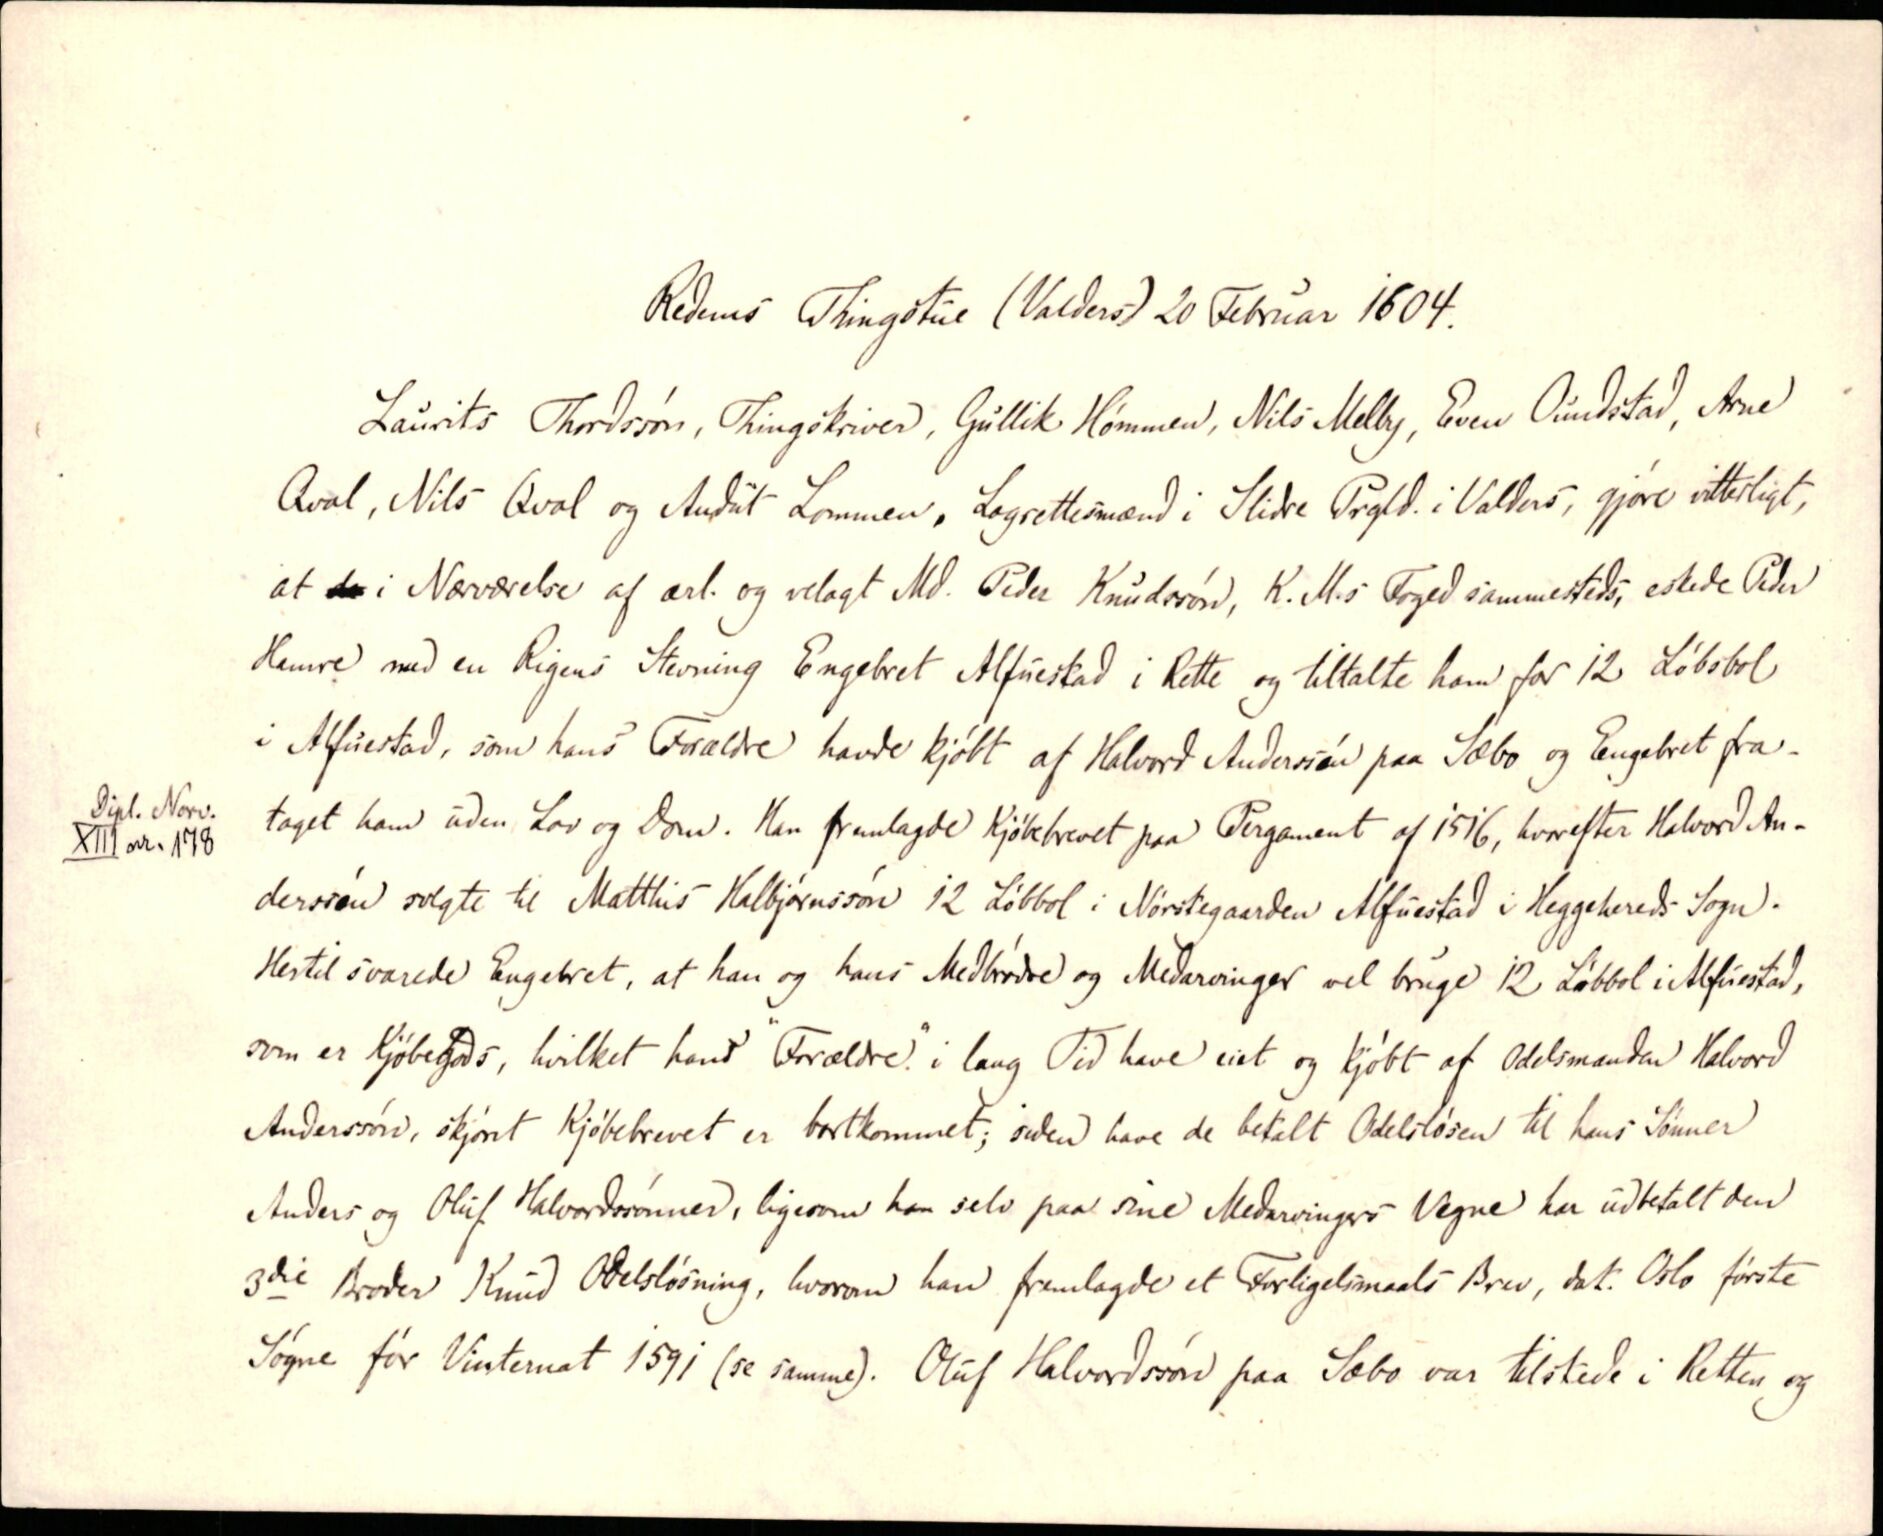 Redens Thingstue (Valders) 20 Februar 1604.
Laurits Thordssøn, Thingskriver, Gullik Hømmen, Nils Melby, Even Oundstad, Arne
Qval, Nils Qval og Andut Lommen, Lagrettesmænd i Slidre Prgld. i Valders, gjøre vitterligt,
at i Nærværelse af ærl. og velagt Md. Peder Knudssøn, K. M.s Foged sammesteds, eskede Peder
Hamre med en Rigens Stevning Engebret Alfuestad i Rette og tiltalte ham for 12 Løbsbol
i Alfuestad, som hans Forældre havde kjøbt af Halvord Anderssøn paa Sæbo og Engebret fra-
Dipl. Norv.
XIII nr. 178
taget ham uden Lov og Dom. Han fremlagde Kjøbebrevet paa Pergament af 1516, hvorefter Halvord An-
derssøn solgte til Matthis Halbjørnssøn 12 Løbbol i Nørstegaarden Alfuestad i Heggehereds Sogn.
Hertil svarede Engebret, at han og hans Medbrødre og Medarvinger vel bruge 12 Løbbol i Alfuestad,
som er Kjøbegods, hvilket hans "Forældre" i lang Tid have eiet og kjøbt af Odelsmanden Halvord
Anderssøn, skjønt Kjøbebrevet er bortkommet; siden have de betalt Odelsløsen til hans Sønner
Anders og Oluf Halvordssønner, ligesom han selv paa sine Medarvingers Vegne har udbetalt den
3die Broder Knud Odelsløsning, hvorom han fremlagde et Forligelsmaals Brev, dat. Oslo første
Søgne før Vinternat 1591 (se samme). Oluf Halvordssøn paa Sæbo var tilstede i Retten og